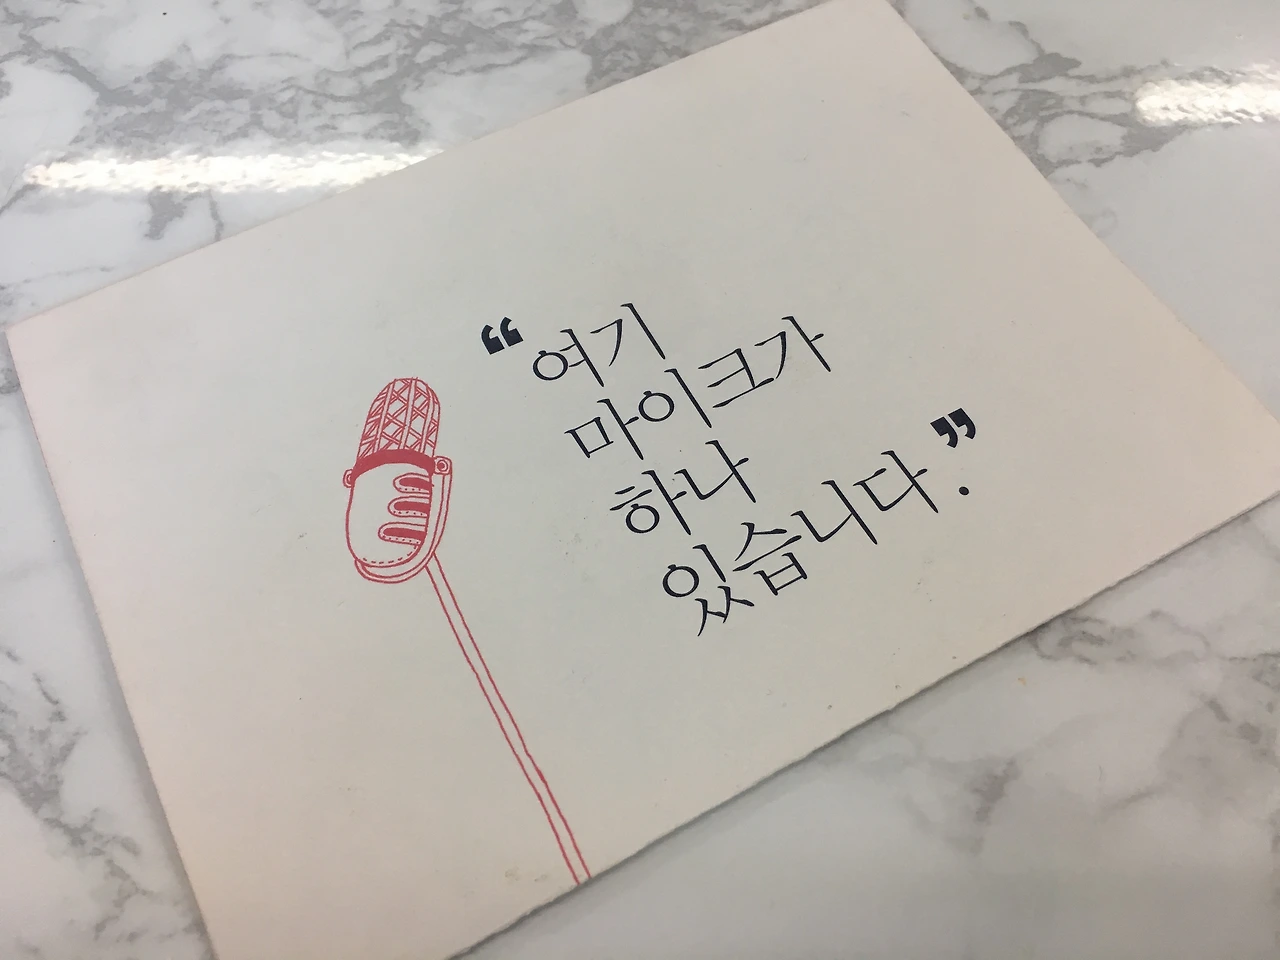 “여기
마이크가
하나
있습니다.”